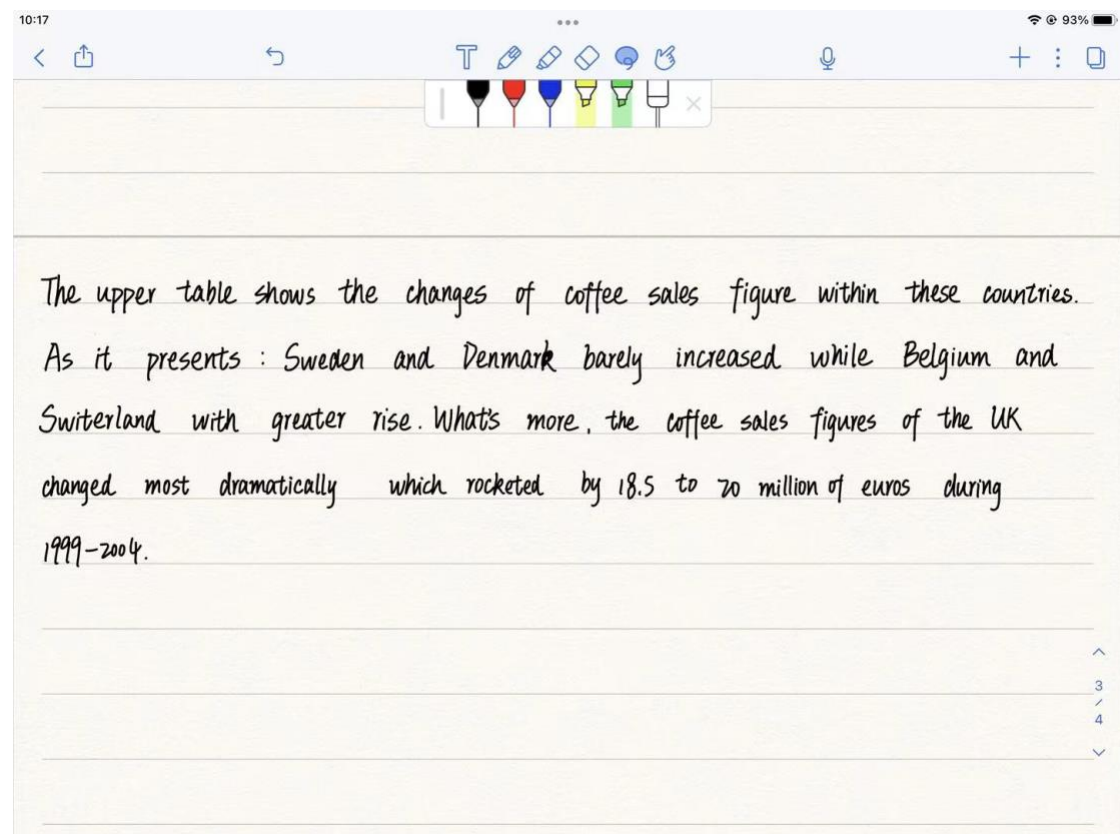 10:17
93%
The upper table shows the changes of coffee sales figure within these countries.
As it presents : Sweden and Denmark barely increased while Belgium and
Switerland with greater rise. What's more, the coffee sales figures of the UK
changed most dramatically which rocketed by 18.5 to 20 million of euros during
1999-2004.
3
/
4